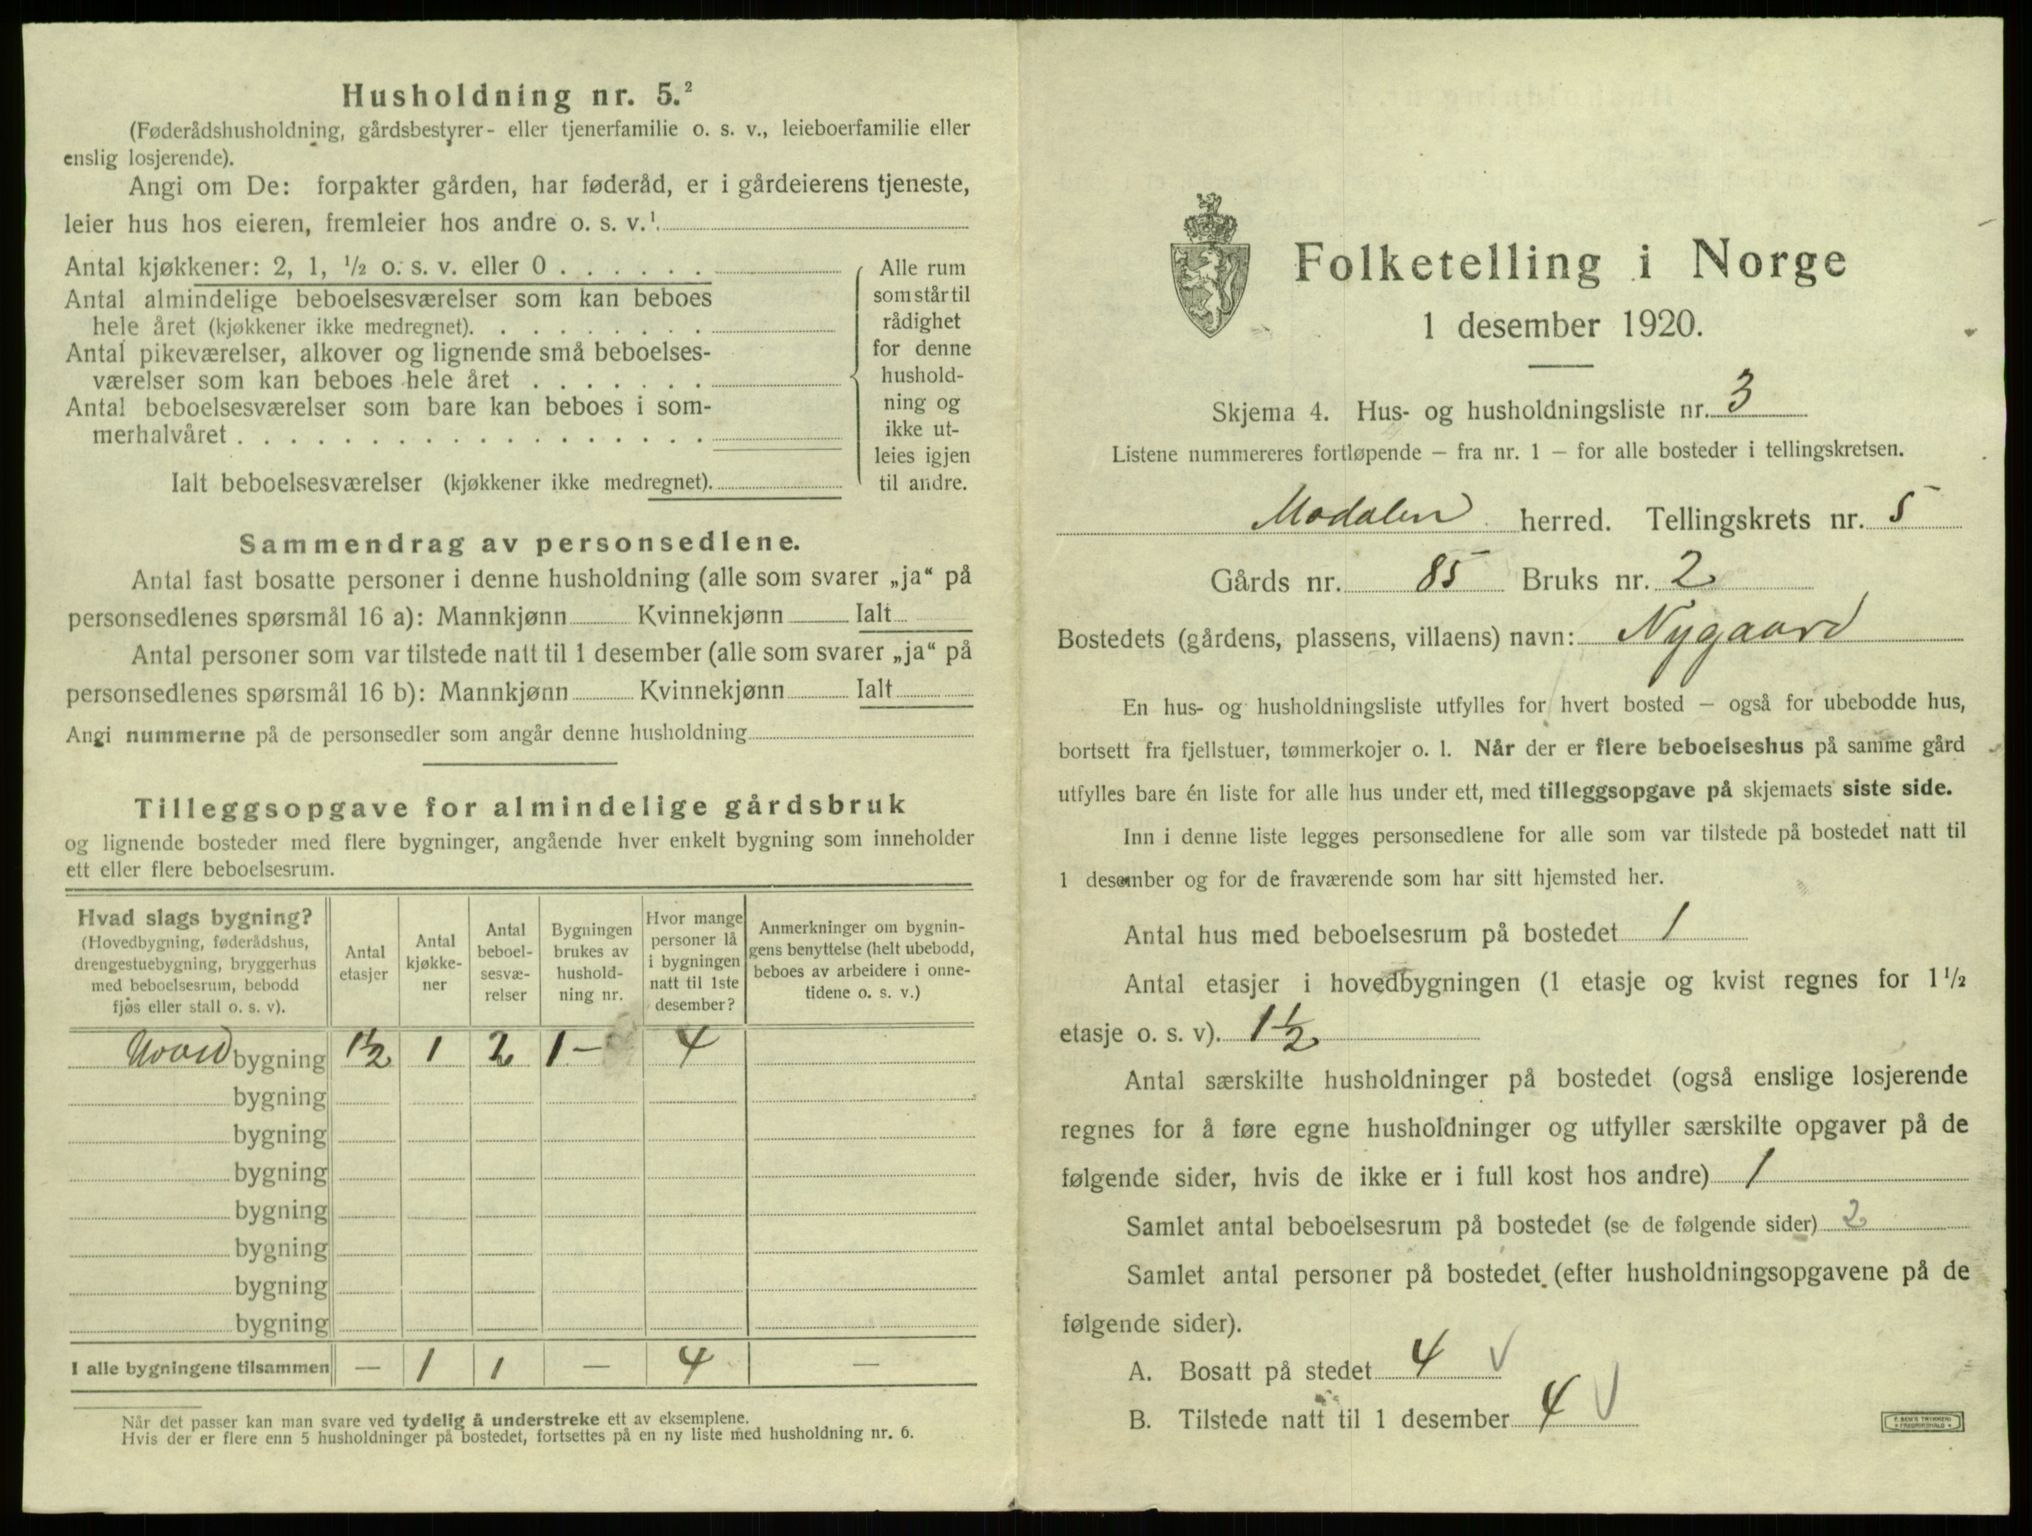 Husholdning nr. 5.²
(Føderådshusholdning, gårdsbestyrer- eller tjenerfamilie o. s. v., leieboerfamilie eller
enslig losjerende).
Angi om De: forpakter gården, har føderåd, er i gårdeierens tjeneste,
leier hus hos eieren, fremleier hos andre o. s. v.¹
Antal kjøkkener: 2, 1, ½ o. s. v. eller 0 . . . . . .
Antal almindelige beboelsesværelser som kan beboes
hele året (kjøkkener ikke medregnet). . . . . . . . .
Antal pikeværelser, alkover og lignende små beboelses-
værelser som kan beboes hele året . . . . . . .
Antal beboelsesværelser som bare kan beboes i som-
merhalvåret . . . . . . . . . . . . . . . . . .
Ialt beboelsesværelser (kjøkkener ikke medregnet).
Alle rum
som står til
rådighet
for denne
hushold-
ning og
ikke ut-
leies igjen
til andre.
Sammendrag av personsedlene.
Antal fast bosatte personer i denne husholdning (alle som svarer „ja“ på
personsedlenes spørsmål 16 a): Mannkjønn Kvinnekjønn Ialt
Antal personer som var tilstede natt til 1 desember (alle som svarer „ja“ på
personsedlenes spørsmål 16 b): Mannkjønn Kvinnekjønn Ialt
Angi nummerne på de personsedler som angår denne husholdning
Tilleggsopgave for almindelige gårdsbruk
og lignende bosteder med flere bygninger, angående hver enkelt bygning som inneholder
ett eller flere beboelsesrum.
Hvad slags bygning?
(Hovedbygning, føderådshus,
drengestuebygning, bryggerhus
med beboelsesrum, bebodd
fjøs eller stall o. s. v).
Antal
etasjer
Antal
kjøkke-
ner
Antal
beboel-
sesvæ-
relser
Bygningen
brukes av
hushold-
ning nr.
Hvor mange
personer lå
i bygningen
natt til 1ste
desember?
Anmerkninger om bygnin-
gens benyttelse (helt ubebodd,
beboes av arbeidere i onne-
tidene o. s. v.)
bygning 1½ 1 2 1 – 4
bygning
bygning
bygning
bygning
bygning
bygning
bygning
I alle bygningene tilsammen — 1 1 — 4 —
Når det passer kan man svare ved tydelig å understreke ett av eksemplene.
Hvis der er flere enn 5 husholdninger på bostedet, fortsettes på en ny liste med husholdning nr. 6.
Folketelling i Norge
1 desember 1920.
Skjema 4. Hus- og husholdningsliste nr. 3
Listene nummereres fortløpende – fra nr. 1 – for alle bosteder i tellingskretsen.
Modalen herred. Tellingskrets nr. 5
Gårds nr. 85 Bruks nr. 2
Bostedets (gårdens, plassens, villaens) navn: Nygaard
En hus- og husholdningsliste utfylles for hvert bosted – også for ubebodde hus,
bortsett fra fjellstuer, tømmerkojer o. l. Når der er flere beboelseshus på samme gård
utfylles bare én liste for alle hus under ett, med tilleggsopgave på skjemaets siste side.
Inn i denne liste legges personsedlene for alle som var tilstede på bostedet natt til
1 desember og for de fraværende som har sitt hjemsted her.
Antal hus med beboelsesrum på bostedet 1
Antal etasjer i hovedbygningen (1 etasje og kvist regnes for 1½
etasje o. s. v). 1½
Antal særskilte husholdninger på bostedet (også enslige losjerende
regnes for å føre egne husholdninger og utfyller særskilte opgaver på de
følgende sider, hvis de ikke er i full kost hos andre) 1
Samlet antal beboelsesrum på bostedet (se de følgende sider) 2
Samlet antal personer på bostedet (efter husholdningsopgavene på de
følgende sider).
A. Bosatt på stedet 4 V
B. Tilstede natt til 1 desember 4 V